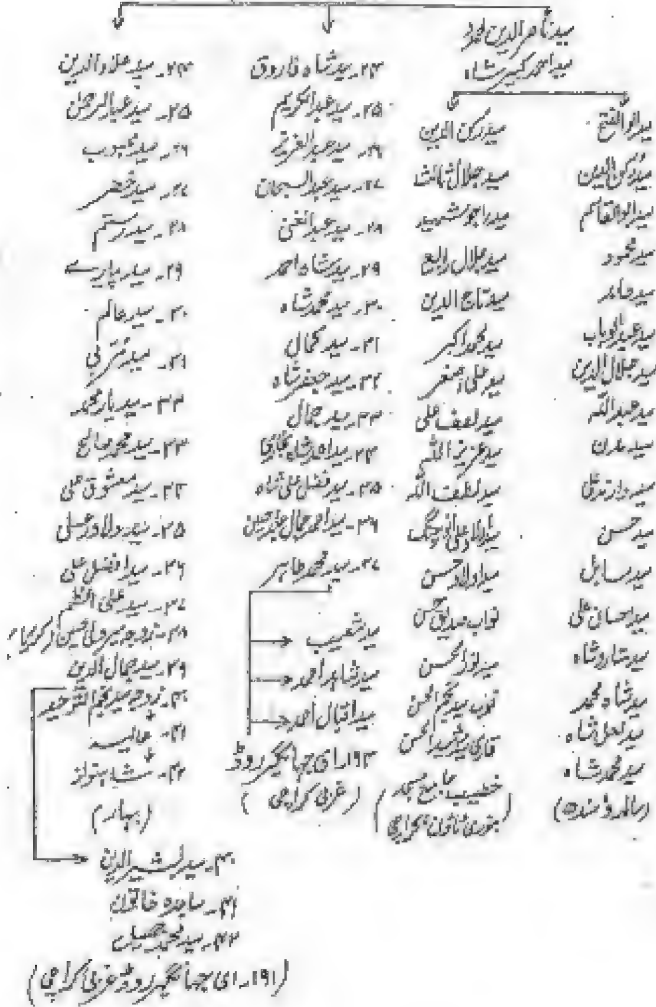 سید ناصر الدین محمود
سید احمد کبیر شاہ
سید ابوالفتح
سید رکن الدین
سید ابوالقاسم
سید محمود
سید حامد
سید عبدالوہاب
سید جلال الدین
سید عبداللہ
سید مدن
سید
سید حسن
سید سابل
سید احسان علی
سید ستار شاہ
سید شاہ محمد
سید لعل شاہ
سید محمد شاہ
(سندھ)
سید رکن الدین
سید جلال ثالث
سید راجو شہید
سید جلال رابع
سید تاج الدین
سید محمد اکبر
سید علی اصغر
سید لطف علی
سید عزیز اللہ
سید لطف اللہ
سید اولاد علی انور جنگ
سید اولاد حسن
نواب صدیق حسن
سید نور الحسن
نواب سید نجم الحسن
قاری سید رشید الحسن
خطیب جامع مسجد
(بنوری ٹاؤن کراچی)
۲۴۔ سید شاہ فاروق
۲۵۔ سید عبدالکریم
۲۶۔ سید عبدالعزیز
۲۷۔ سید عبدالسبحان
۲۸۔ سید عبدالغنی
۲۹۔ سید شاہ احمد
۳۰۔ سید محمد شاہ
۳۱۔ سید کمال
۳۲۔ سید جعفر شاہ
۳۳۔ سید جمال
۳۴۔ سید احمد شاہ بخاری
۳۵۔ سید فضل علی شاہ
۳۶۔ سید احمد جمال
۳۷۔ سید محمد طاہر
سید شعیب
سید شاہد احمد
سید اقبال احمد
۱۹۳ ای جہانگیر روڈ
(غربی کراچی)
۲۴۔ سید علاء الدین
۲۵۔ سید عبدالرحمٰن
۲۶۔ سید محبوب
۲۷۔ سید خضر
۲۸۔ سید رستم
۲۹۔ سید پیارے
۳۰۔ سید عالم
۳۱۔ سید
۳۲۔ سید یار محمد
۳۳۔ سید محمد صالح
۳۴۔ سید معشوق علی
۳۵۔ سید دلاور علی
۳۶۔ سید افضل علی
۳۷۔ سید علی اعظم
۳۸۔ زوجہ سید ولی حسین
۳۹۔ سید جمال الدین
۴۰۔ زوجہ سید
۴۱۔ عالیہ
۴۲۔ شاہنواز
(بہار)
۴۰۔ سید بشیر الدین
۴۱۔ ساجدہ خاتون
۴۲۔ سید محمد
(۱۹۱۔ ای جہانگیر روڈ غربی کراچی)